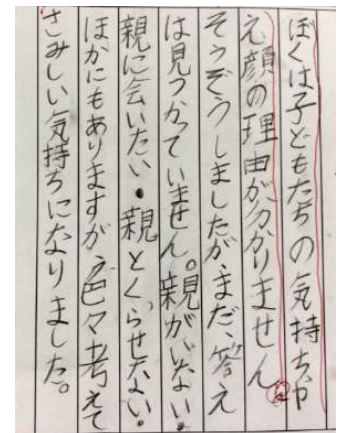 ぼくは子どもたちの気持ちや
え顔の理由が分かりません。
そうぞうしましたが、まだ、答え
は見つかっていません。親がいない・
親に会いたい・親とくらせない・
ほかにもありますが、色々考えて
さみしい気持ちになりました。